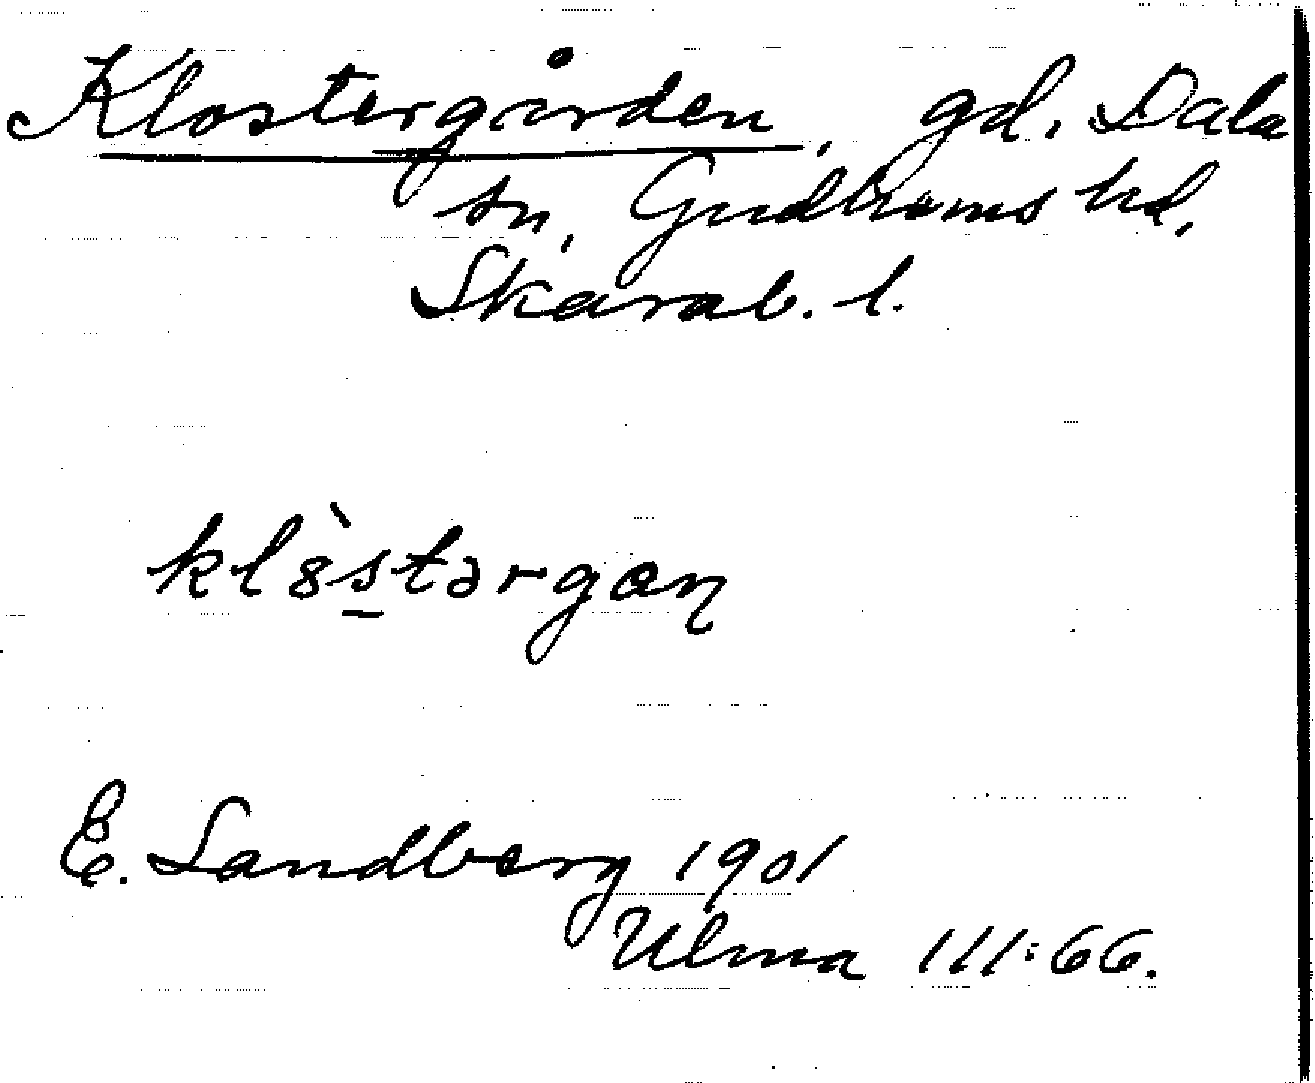 Klostergården, gd. Dala
sn, Gudhems hd,
Skarab. l.
E. Sandberg 1901
Ulma 111:66.